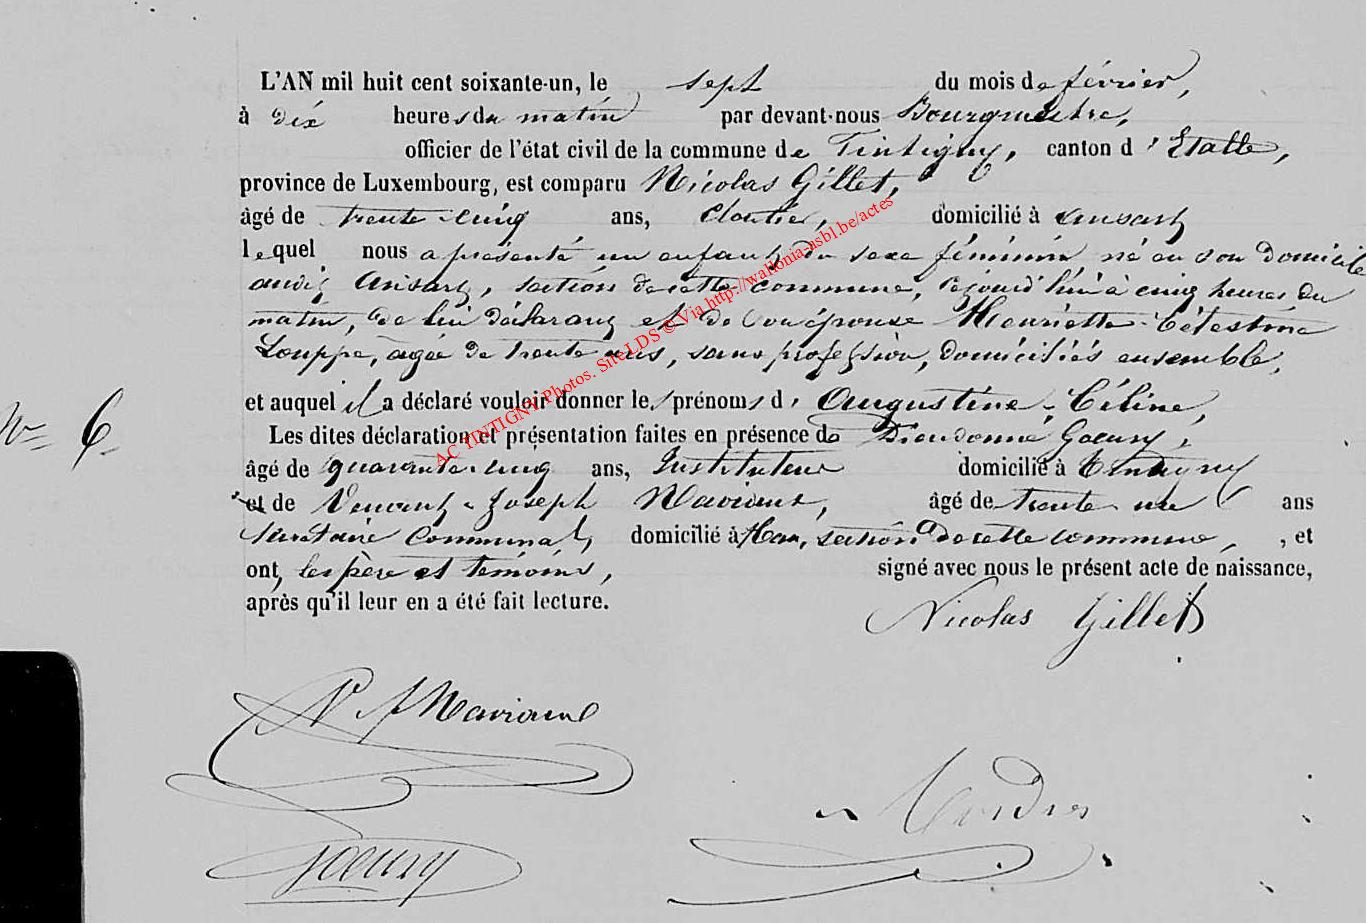 L'AN mil huit cent soixante-un, le sept du mois de février,
à dix heures du matin par devant-nous Bourgmestre,
officier de l'état civil de la commune de Tintigny, canton d'Etalle,
province de Luxembourg, est comparu Nicolas Gillet,
âgé de trente-cinq ans, cloutier, domicilié à Ansart
lequel nous a présenté un enfant du sexe féminin né en son domicile
audit Ansart, section de cette commune, cejourd'hui à cinq heures du
matin, de lui déclarant et de son épouse Henriette-Célestine
Louppe, agée de trente ans, sans profession, domiciliés ensemble,
et auquel il a déclaré vouloir donner les prénoms d' Augustine-Céline,
N° 6
Les dites déclaration et présentation faites en présence de Dieudonné Goeury,
âgé de quarante-cinq ans, Instituteur domicilié à Tintigny
et de Vincent-Joseph Maviaux, âgé de trente un ans
Secrétaire Communal, domicilié à Han, section de cette commune, , et
ont, les père et témoins, signé avec nous le présent acte de naissance,
après qu'il leur en a été fait lecture.
Nicolas Gillet
V. J. Maviaux
Goeury
AC TINTIGNY Photos. Site LDS © Via http://wallonia-asbl.be/actes